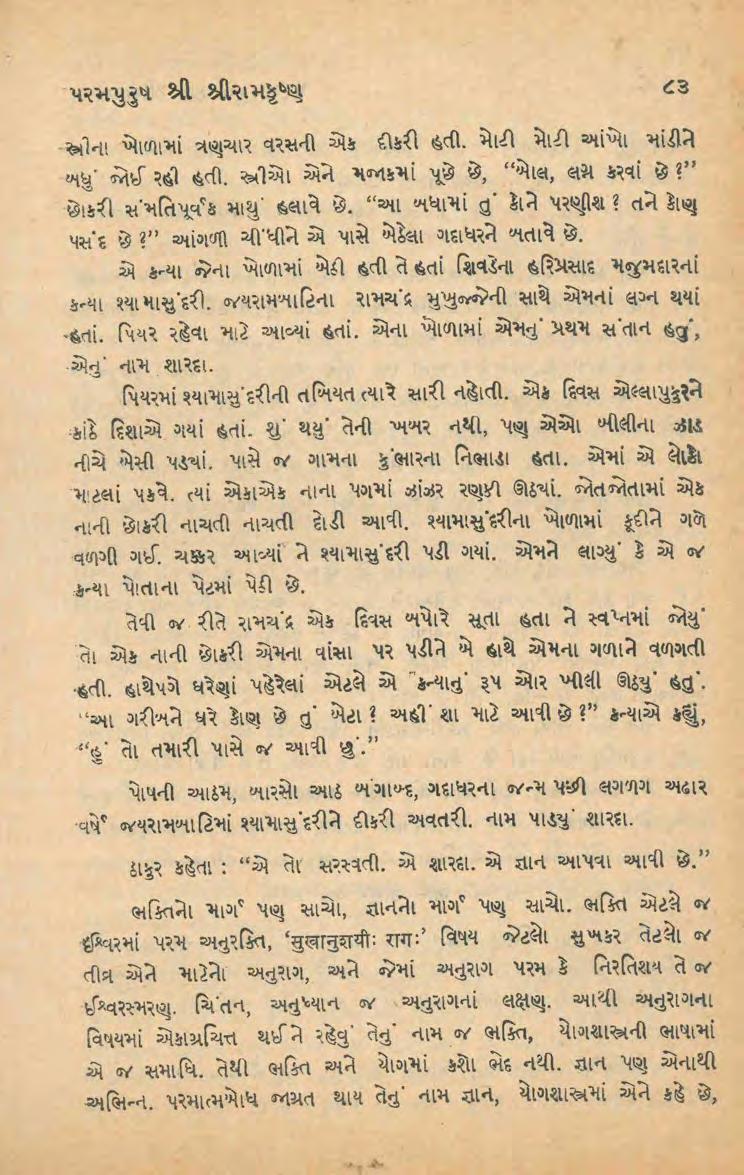 પરમપુરુષ શ્રી શ્રીરામકૃષ્ણ ૮૩
સ્ત્રીના ખોળામાં ત્રણચાર વરસની એક દીકરી હતી. મોટી મોટી આંખો માંડીને
બધું જોઈ રહી હતી. સ્ત્રીઓ એને મજાકમાં પૂછે છે, “બોલ, લગ્ન કરવાં છે ?”
છોકરી સંમતિપૂર્વક માથું હલાવે છે. “આ બધામાં તું કોને પરણીશ ? તને કોણ
પસંદ છે ?” આંગળી ચીંધીને એ પાસે બેઠેલા ગદાધરને બતાવે છે.
એ કન્યા જેના ખોળામાં બેઠી હતી તે હતાં શિવડેના હરિપ્રસાદ મજુમદારનાં
કન્યા શ્યામાસુંદરી. જયરામબાટિના રામચંદ્ર મુખુજ્જેની સાથે એમનાં લગ્ન થયાં
હતાં. પિયર રહેવા માટે આવ્યાં હતાં. એના ખોળામાં એમનું પ્રથમ સંતાન હતું,
એનું નામ શારદા.
પિયરમાં શ્યામાસુંદરીની તબિયત ત્યારે સારી નહોતી. એક દિવસ એલ્લાપુકુરને
કાંઠે દિશાએ ગયાં હતાં. શું થયું તેની ખબર નથી, પણ એઓ બીલીના ઝાડ
નીચે બેસી પડયાં. પાસે જ ગામના કુંભારના નિભાડા હતા. એમાં એ લોકો
માટલાં પકવે. ત્યાં એકાએક નાના પગમાં ઝાંઝર રણકી ઊઠયાં. જોતજોતામાં એક
નાની છોકરી નાચતી નાચતી દોડી આવી. શ્યામાસુંદરીના ખોળામાં કૂદીને ગળે
વળગી ગઈ. ચક્કર આવ્યાં ને શ્યામાસુંદરી પડી ગયાં. એમને લાગ્યું કે એ જ
કન્યા પોતાના પેટમાં પેઠી છે.
તેવી જ રીતે રામચંદ્ર એક દિવસ બપોરે સૂતા હતા ને સ્વપ્નમાં જોયું
તો એક નાની છોકરી એમના વાંસા પર પડીને બે હાથે એમના ગળાને વળગતી
હતી. હાથેપગે ઘરેણાં પહેરેલાં એટલે એ કન્યાનું રૂપ ઓર ખીલી ઊઠયું હતું.
“આ ગરીબને ઘરે કોણ છે તું બેટા ? અહીં શા માટે આવી છે ?” કન્યાએ કહ્યું,
“હું તો તમારી પાસે જ આવી છું.”
પોષની આઠમ, બારસો આઠ બંગાબ્દ, ગદાધરના જન્મ પછી લગભગ અઢાર
વર્ષે જયરામબાટિમાં શ્યામાસુંદરીને દીકરી અવતરી. નામ પાડયું શારદા.
ઠાકુર કહેતા : “એ તો સરસ્વતી. એ શારદા. એ જ્ઞાન આપવા આવી છે.”
ભક્તિનો માર્ગ પણ સાચો, જ્ઞાનનો માર્ગ પણ સાચો. ભક્તિ એટલે જ
ઈશ્વરમાં પરમ અનુરક્તિ, ‘सुखानुशयीः रागः’ વિષય જેટલો સુખકર તેટલો જ
તીવ્ર એને માટેનો અનુરાગ, અને જેમાં અનુરાગ પરમ કે નિરતિશય તે જ
ઈશ્વરસ્મરણ. ચિંતન, અનુધ્યાન જ અનુરાગનાં લક્ષણ. આથી અનુરાગના
વિષયમાં એકાગ્રચિત્ત થઈને રહેવું તેનું નામ જ ભક્તિ, યોગશાસ્ત્રની ભાષામાં
એ જ સમાધિ. તેથી ભક્તિ અને યોગમાં કશો ભેદ નથી. જ્ઞાન પણ એનાથી
અભિન્ન. પરમાત્મબોધ જાગ્રત થાય તેનું નામ જ્ઞાન, યોગશાસ્ત્રમાં એને કહે છે,